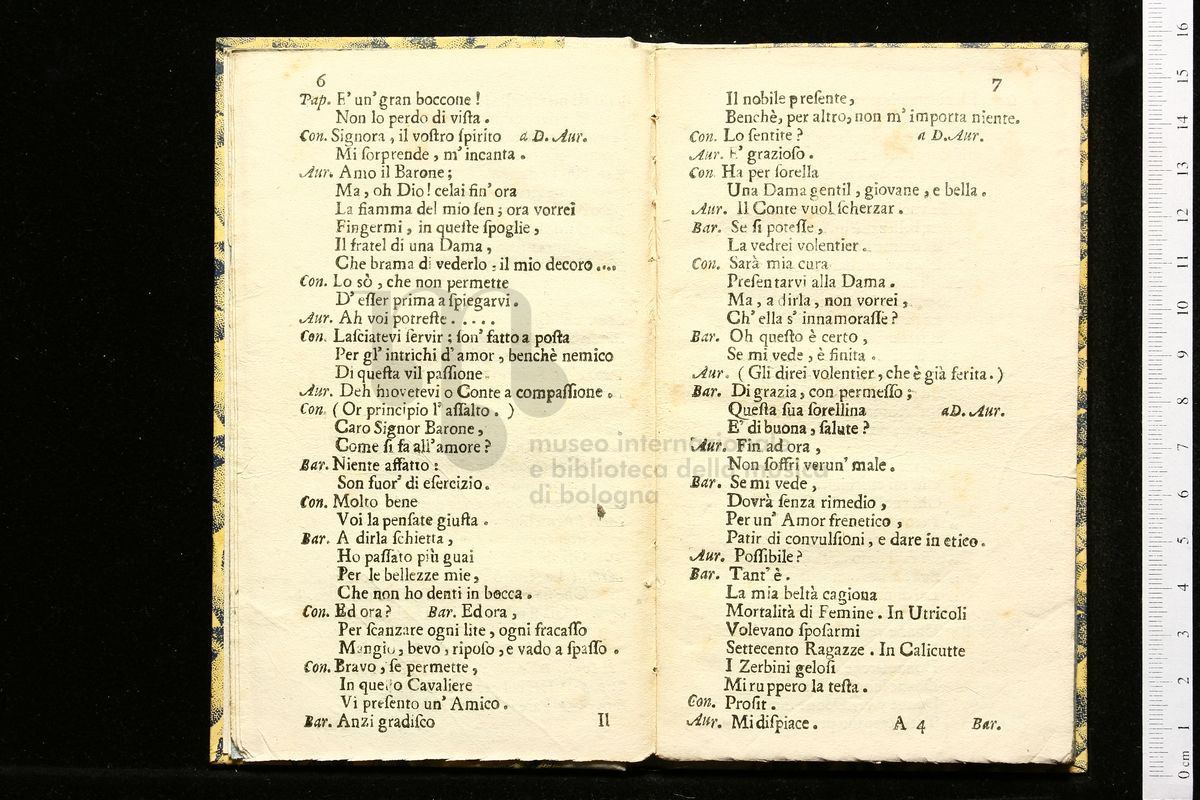 6
Pap. E' un' gran boccone !
Non lo perdo di vista .
Con. Signora , il vostro spirito a D. Aur.
Mi sorprende , m' incanta .
Aur. Amo il Barone ;
Ma , oh Dio ! celai fin' ora
La fiamma del mio sen ; ora vorrei
Fingermi , in queste spoglie ,
Il fratel di una Dama ,
Che brama di vederlo ; il mio decoro ....
Con. Lo sò , che non permette
D' esser prima a spiegarvi .
Aur. Ah voi potreste . . . . .
Con. Lasciatevi servir : son' fatto a posta
Per gl' intrichi d' amor , benchè nemico
Di questa vil passione
Aur. Deh movetevi o Conte a compassione .
Con. ( Or principio l' assalto . )
Caro Signor Barone ,
Come si fa all' amore ?
Bar. Niente affatto :
Son fuor' di esercizio .
Con. Molto bene
Voi la pensate giusta .
Bar. A dirla schietta ,
Ho passato più guai
Per le bellezze mie ,
Che non ho denti in bocca .
Con. Ed ora ? Bar. Ed ora ,
Per scanzare ogni lite , ogni fracasso
Mangio , bevo , riposo , e vado a spasso .
Con. Bravo , se permette ,
In questo Cavaliere
Vi presento un' Amico .
Bar. Anzi gradisco
Il
7
Il nobile presente ,
Benchè, per altro, non m' importa niente.
Con. Lo sentite ? a D.Aur.
Aur. E' grazioso .
Con. Ha per sorella
Una Dama gentil , giovane , e bella .
Aur. Il Conte vuol scherzar .
Bar. Se si potesse ,
La vedrei volentier .
Con. Sarà mia cura
Presentarvi alla Dama .
Ma , a dirla , non vorrei ,
Ch' ella s' innamorasse ?
Bar. Oh questo è certo ,
Se mi vede , è finita .
Aur. ( Gli direi volentier , che è già ferita . )
Bar. Di grazia, con permesso ;
Questa sua sorellina aD. Aur.
E' di buona , salute ?
Aur. Fin ad ora ,
Non soffrì verun' male .
Bar. Se mi vede ,
Dovrà senza rimedio ,
Per un' Amor frenetico ,
Patir di convulsioni , e dare in etico .
Aur. Possibile ?
Bar. Tant' è .
La mia beltà cagiona
Mortalità di Femine . In Utricoli
Volevano sposarmi
Settecento Ragazze . In Calicutte
I Zerbini gelosi
Mi ruppero la testa .
Con. Prosit .
Aur. Mi dispiace . A 4 Bar.
museo internazionale
e biblioteca della musica
di bologna
0 cm 1 2 3 4 5 6 7 8 9 10 11 12 13 14 15 16